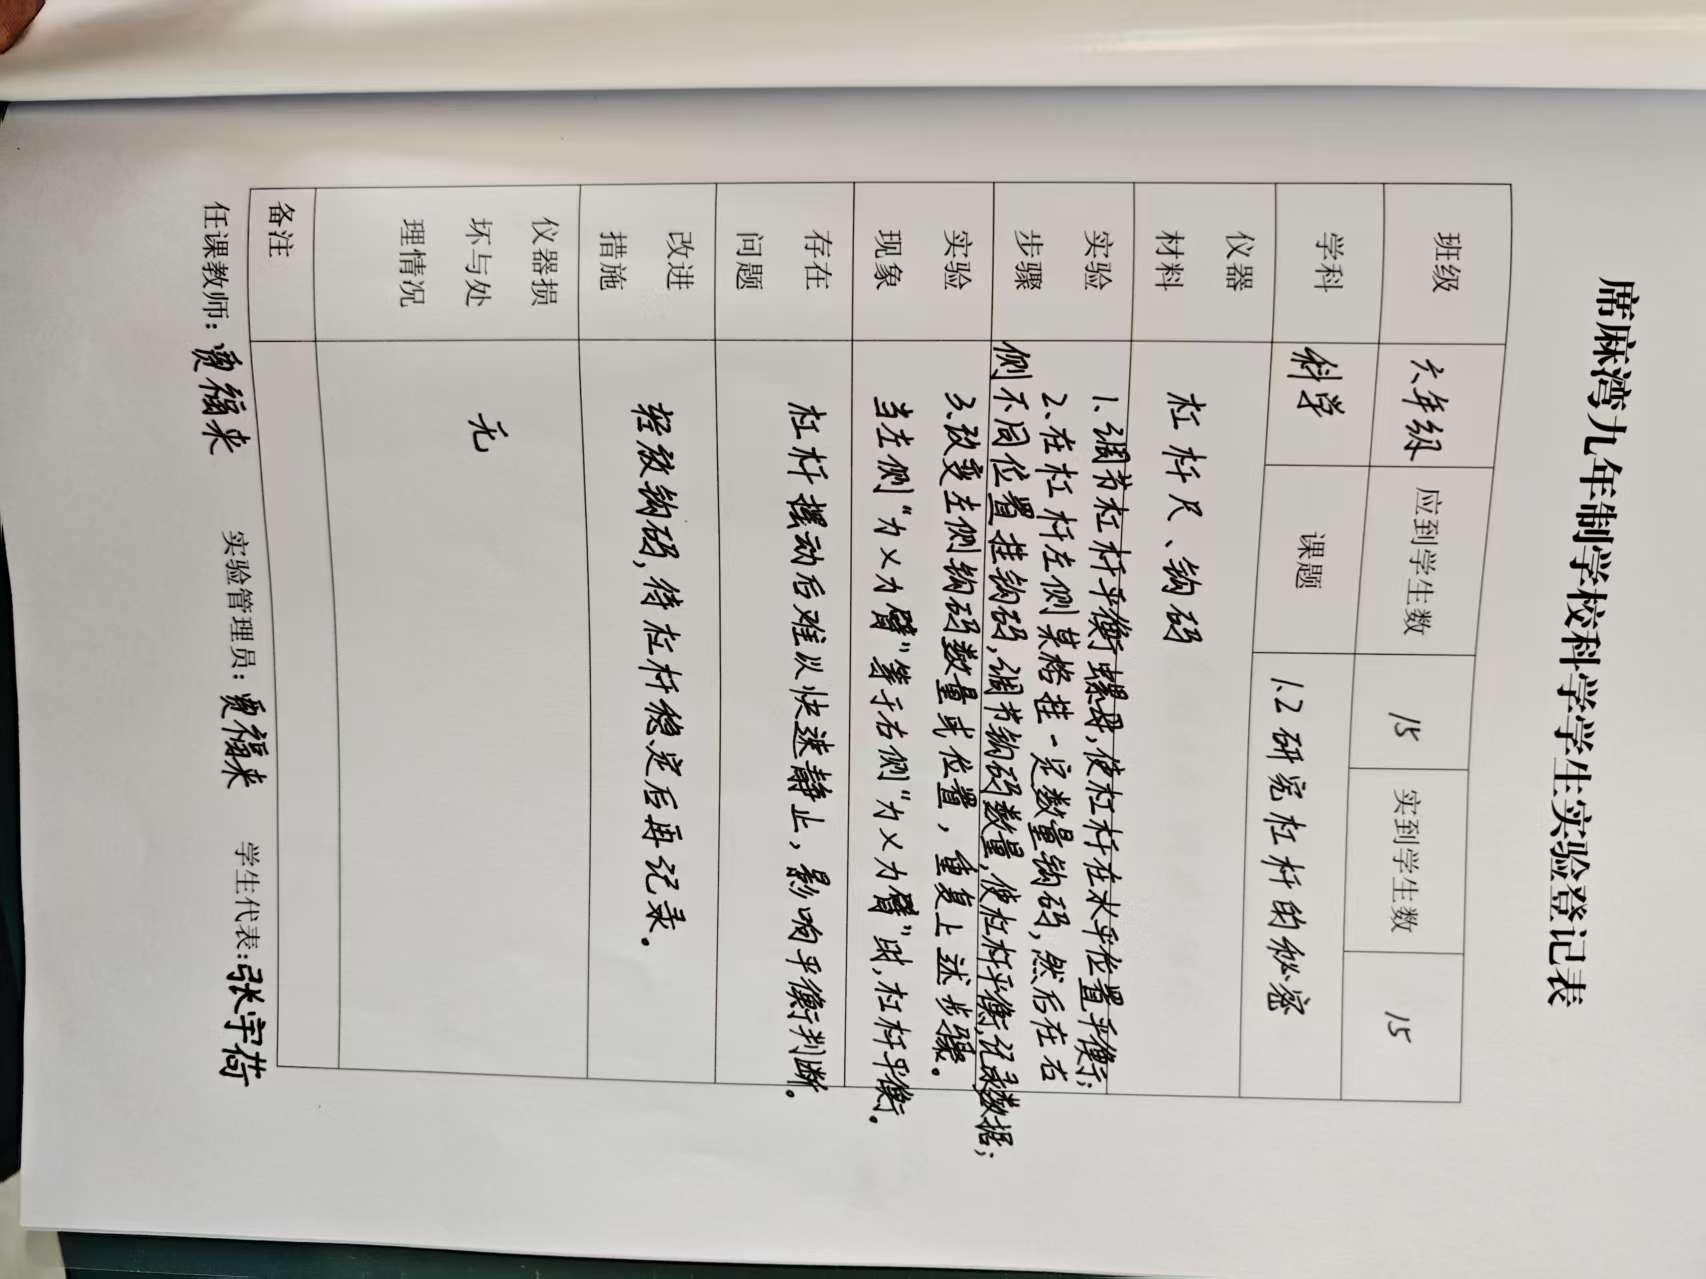 席麻湾九年制学校科学学生实验登记表
班级 六年级 应到学生数 15 实到学生数 15
学科 科学 课题 1.2研究杠杆的秘密
仪器
材料
杠杆尺、钩码
实验
步骤
1.调节杠杆平衡螺母,使杠杆在水平位置平衡;
2.在杠杆左侧某格挂一定数量钩码,然后在右
侧不同位置挂钩码,调节钩码数量,使杠杆平衡,记录数据;
3.改变左侧钩码数量或位置,重复上述步骤。
实验
现象
当左侧“力×力臂”等于右侧“力×力臂”时,杠杆平衡。
存在
问题
杠杆摆动后难以快速静止,影响平衡判断。
改进
措施
轻放钩码,待杠杆稳定后再记录。
仪器损
坏与处
理情况
无
备注
任课教师:贾福来 实验管理员:贾福来 学生代表:张宇荷